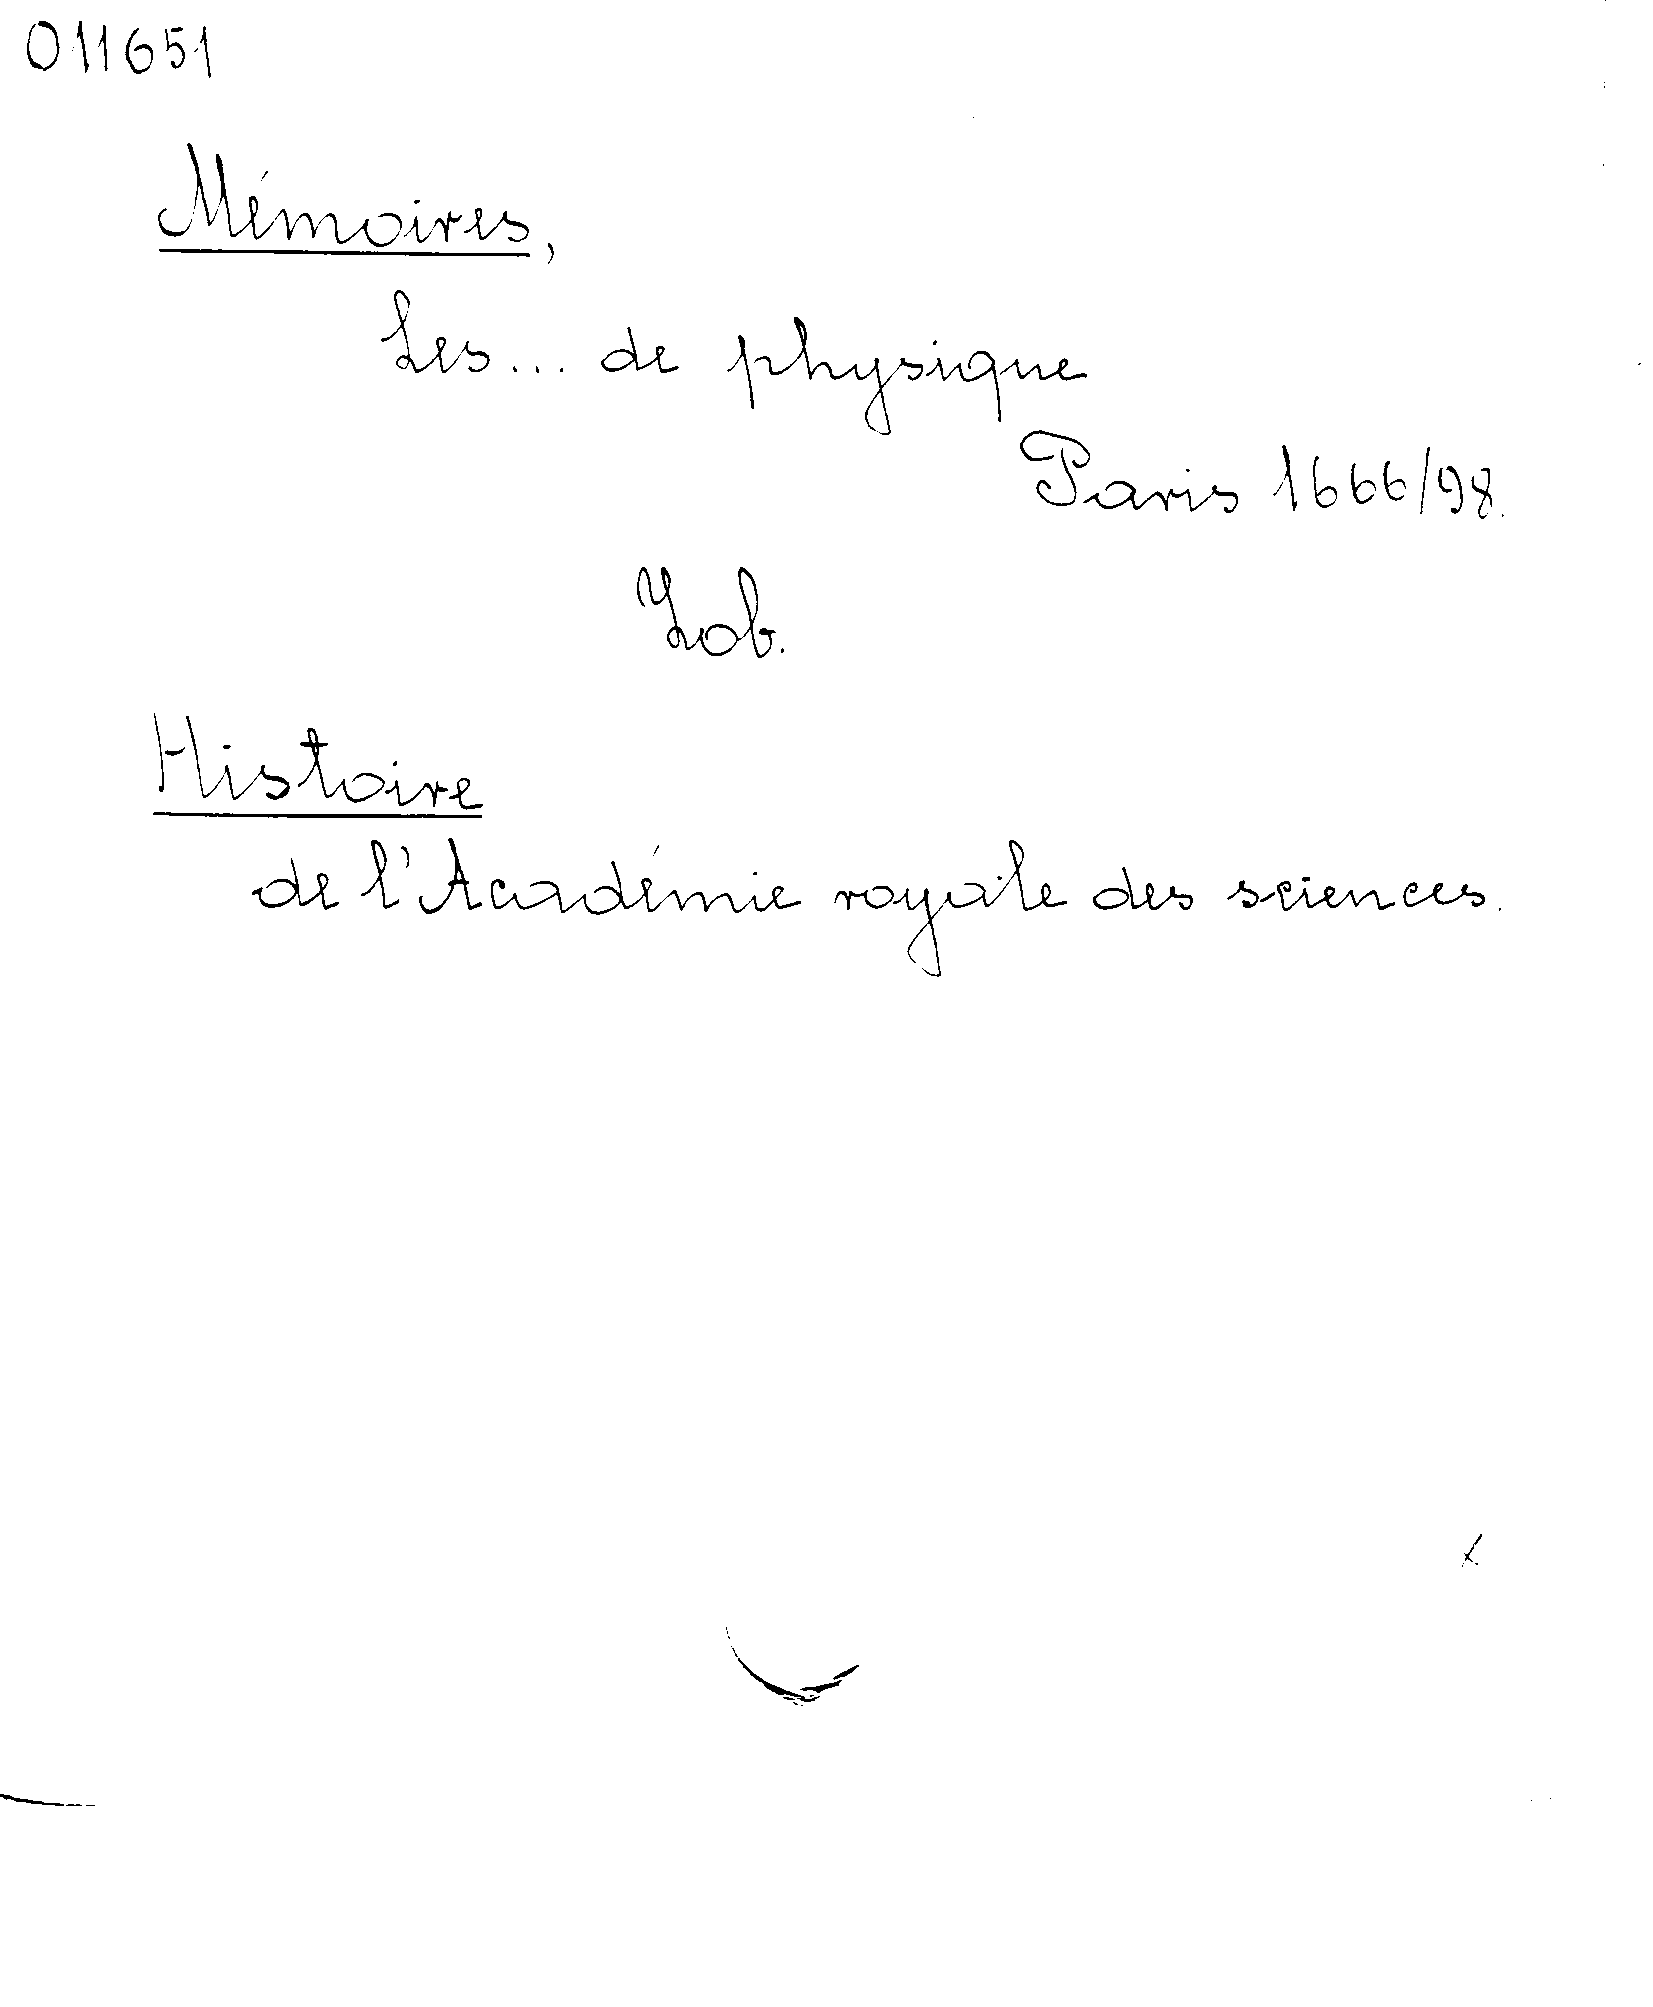 011651
Mémoires,
Les... de physique
Paris 1666/98.
Zob.
Histoire
de l'Académie royale des sciences.